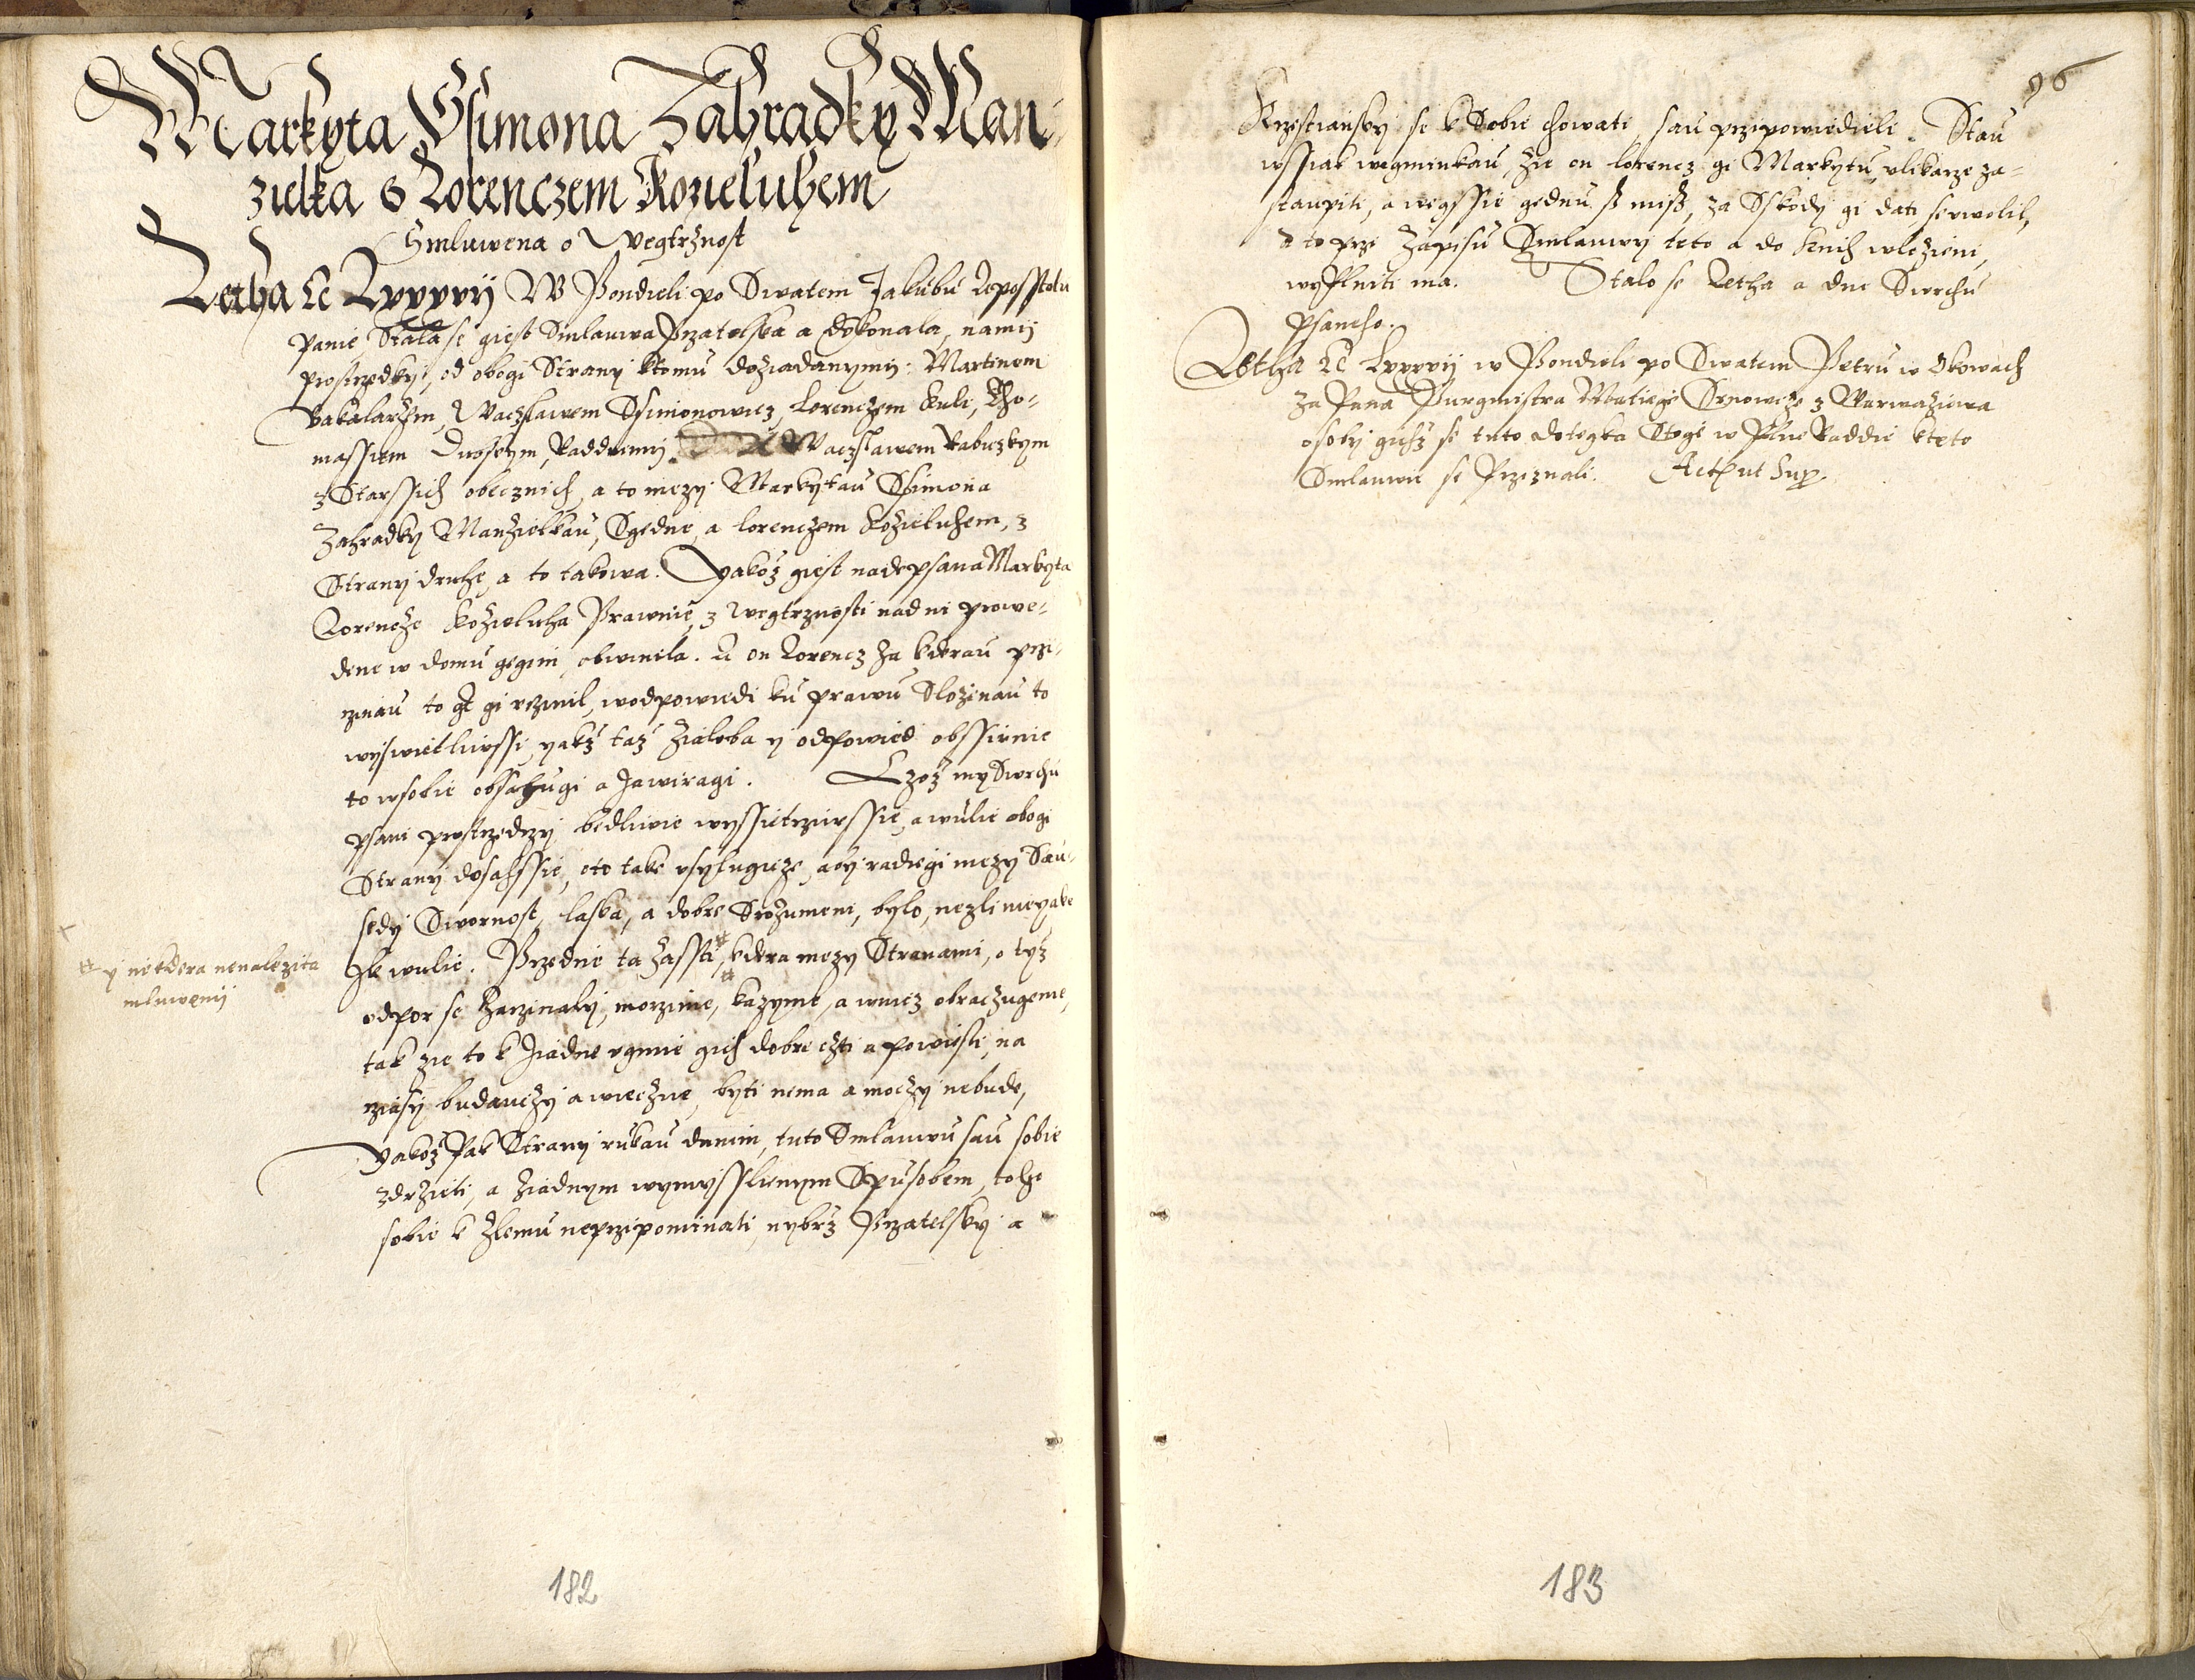 Markyta Ssimona Zahradky Man-
zielka s Lorenczem Kozieluhem
Smluwena o Wegtržnost
Letha &c Lxxxvij W Pondieli po Swatem Jakubu Aposstolu
Panie, Stala se giest Smlauwa Przatelska a dokonala, namij
prostrzedky, od obogi Strany ktomu dožiadanymij: Martinem
Bakalaržem, Waczlawem Ssimonowicz, Lorenczem Kuli, Tho-
massem Raddnimij Waczslawem Rabiczkym
z Starssich obecznich, a to mezy Markytau Ssimona
Zahradky Manzielkau, S gedne, a lorenczem Kožieluhem, z
Strany druhe, a to takowa. Yakož giest nadepsana Markyta
Lorencze Kožieluha Prawnie, z wegtržnosti nad ni prowe-
dene w domu gegim, obwinila. A on Lorencz za kterau przi-
czinau to gt gi vczinil, w odpowiedi ku prawu Složenau to
wyswietliwssi, yakž taž žialoba y odpowied obssirnie
to w sobie obsahugi a zawiragi. Czož my Swrchu
psani prostrzedczy bedliwie wyssetrziwssie, a wuli obogi
Strany dosahssie, o to take vsylugicze, aby radiegi mezy Sau-
sedy Swornost, laska, a dobre Srozumeni, bylo, nezli nieyake
Zle wule. Przednie ta zassti #, ktera mezy Stranami, o tyž
odpor se zaczinaly, morzime, kazyme, a wnicz obraczugeme,
tak zie to k žiadne vgmie gich dobre czti a powiesti, na
cziasy budauczy a wieczne, byti nema a moczy nebude,
Yakož Pak Strany rukau danim, tuto Smlauwu sau sobie
zdržieti, a žiadnym wymysslenym Spusobem, toho
sobie k zlemu neprzipominati, nybrž Przatelsky a
# y niektera nenaležita
mluwenij
182
96
Krzestiansky se k Sobie chowati, sau przipowiedieli. Stau
wssiak weyminkau, žie on lorencz gi Markytu, v likarze za-
staupiti, a wegssie gednu ß miß, za Sskody gi dati swolil,
A to przi Zapisu Smlauwy teto a do knih wloženi,
wyplniti ma. Stalo se Letha a dne Swrchu
psaneho.
Letha &c Lxxxvij w Pondieli po Swatem Petru w Okowach
za Pana Purgmistra Matiege z Warwažiowa
osoby gichž se tuto dotegka Stogi w Plne Raddie kteto
Smlauwie se Przeznali. Act ut Sup
183